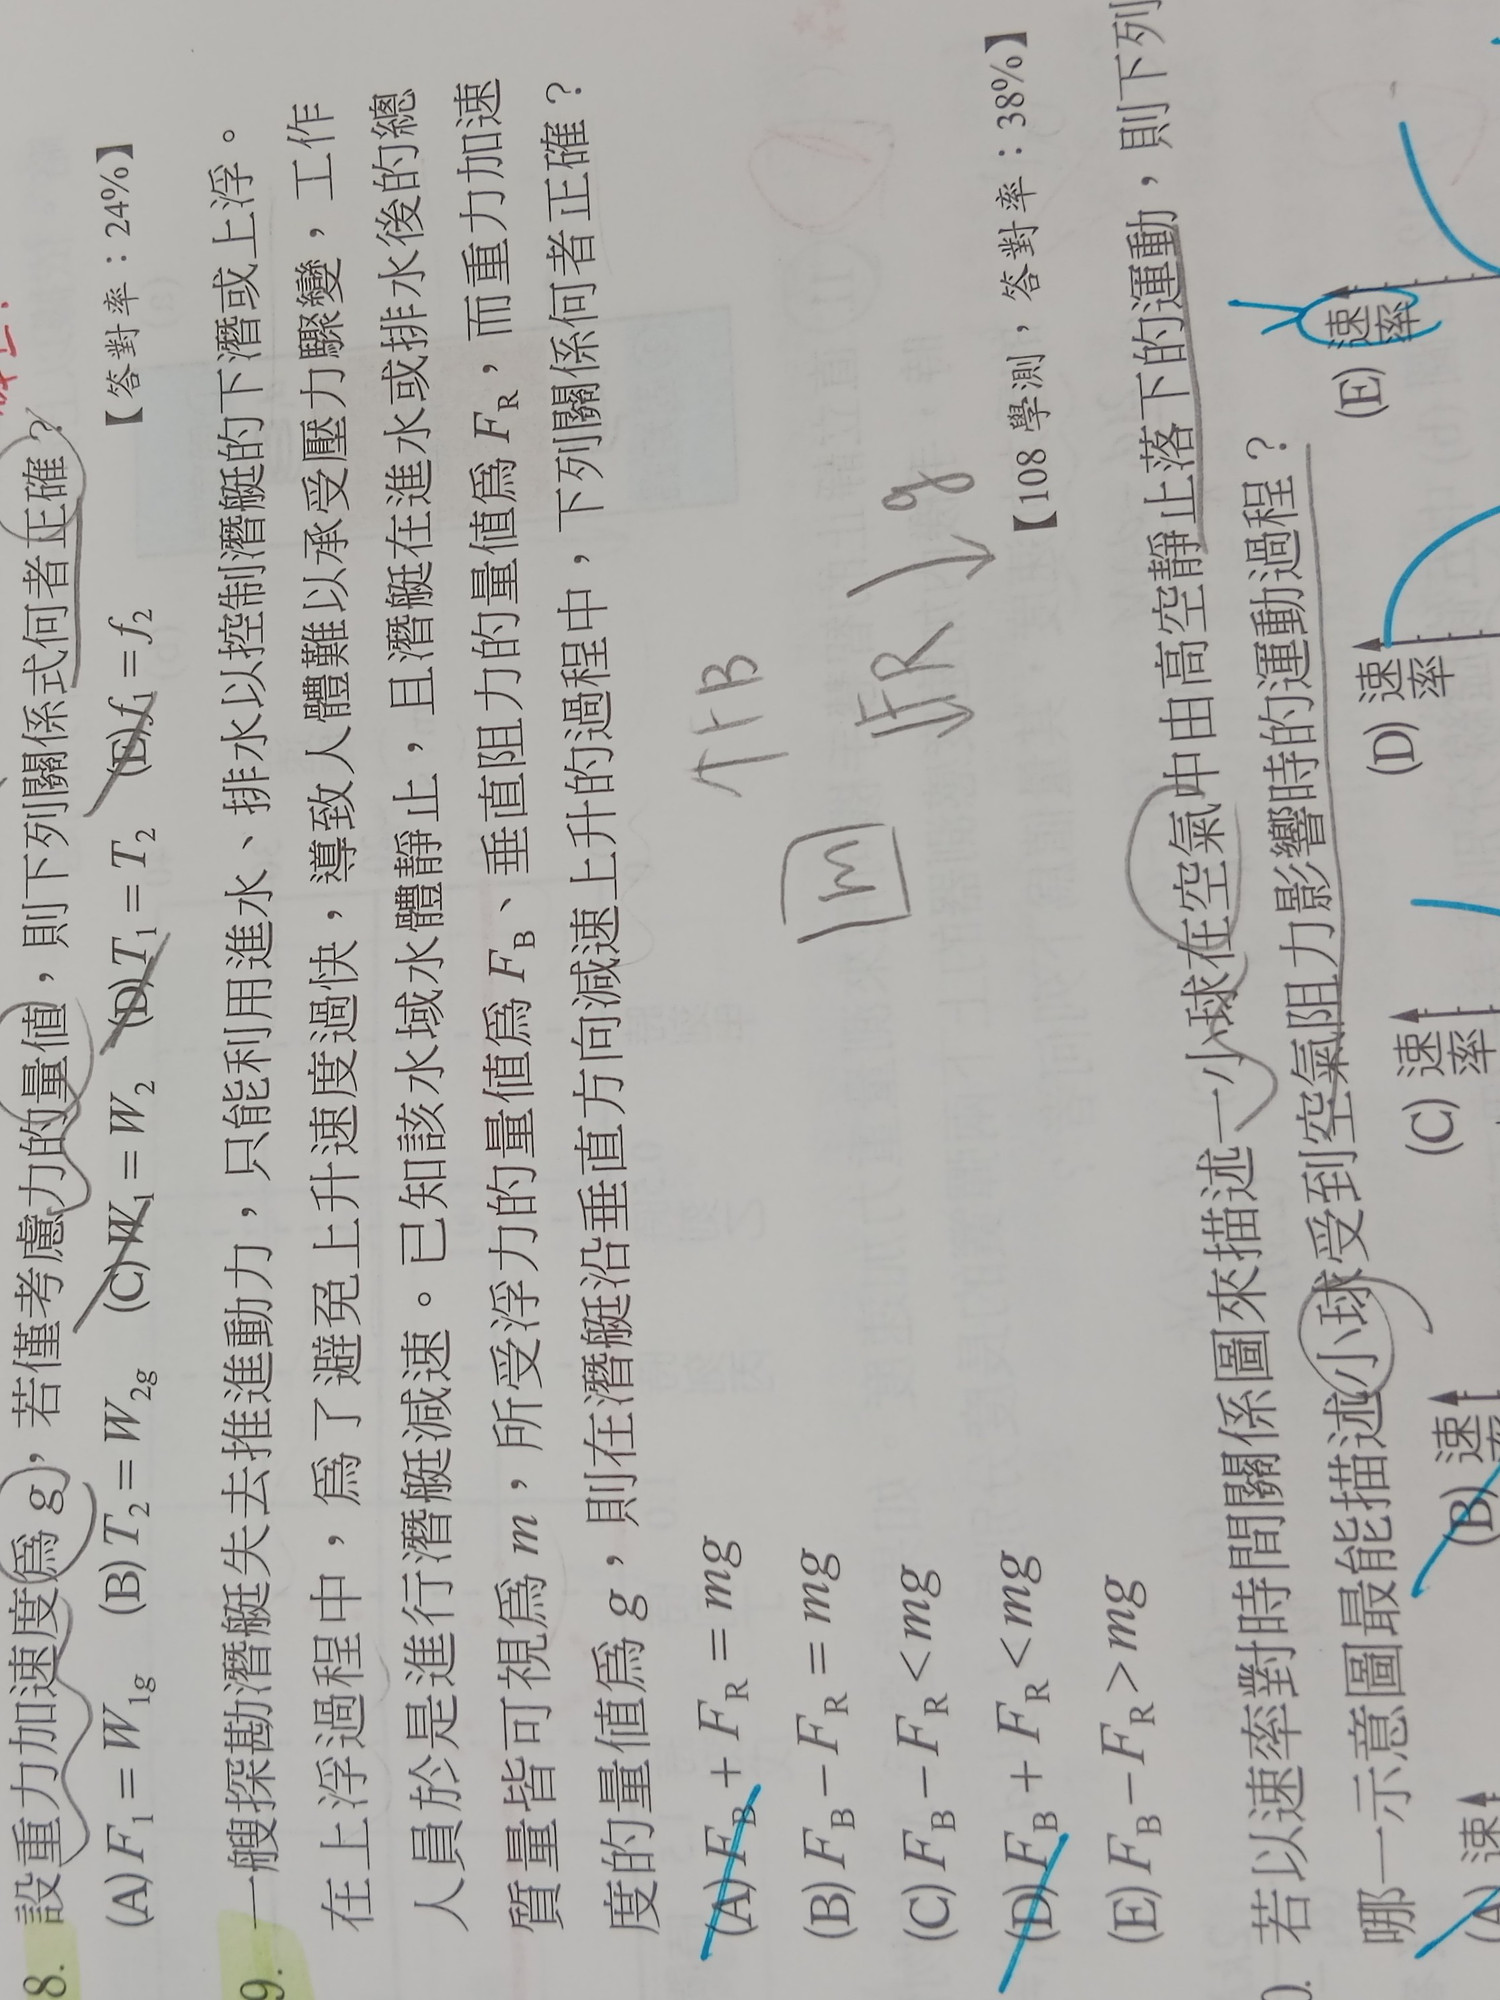 設重力加速度爲 g，若僅考慮力的量値，則下列關係式何者正確？
(A) F₁ = W₁g (B) T₂ = W₂g (C) W₁ = W₂ (D) T₁ = T₂ (E) f₁ = f₂
【答對率：24%】
8.
9. 一艘探勘潛艇失去推進動力，只能利用進水、排水以控制潛艇的下潛或上浮。
在上浮過程中，爲了避免上升速度過快，導致人體難以承受壓力驟變，工作
人員於是進行潛艇減速。已知該水域水體靜止，且潛艇在進水或排水後的總
質量皆可視爲 m，所受浮力的量値爲 F_B、垂直阻力的量値爲 F_R，而重力加速
度的量値爲 g，則在潛艇沿垂直方向減速上升的過程中，下列關係何者正確？
(A) F_B + F_R = mg
(B) F_B − F_R = mg
(C) F_B − F_R < mg
(D) F_B + F_R < mg
(E) F_B − F_R > mg
【108 學測，答對率：38%】
↑FB
m
↓FR ↓g
若以速率對時間關係圖來描述一小球在空氣中由高空靜止落下的運動，則下列
哪一示意圖最能描述小球受到空氣阻力影響時的運動過程？
(A) 速
(B) 速率
(C) 速率
(D) 速率
(E) 速率